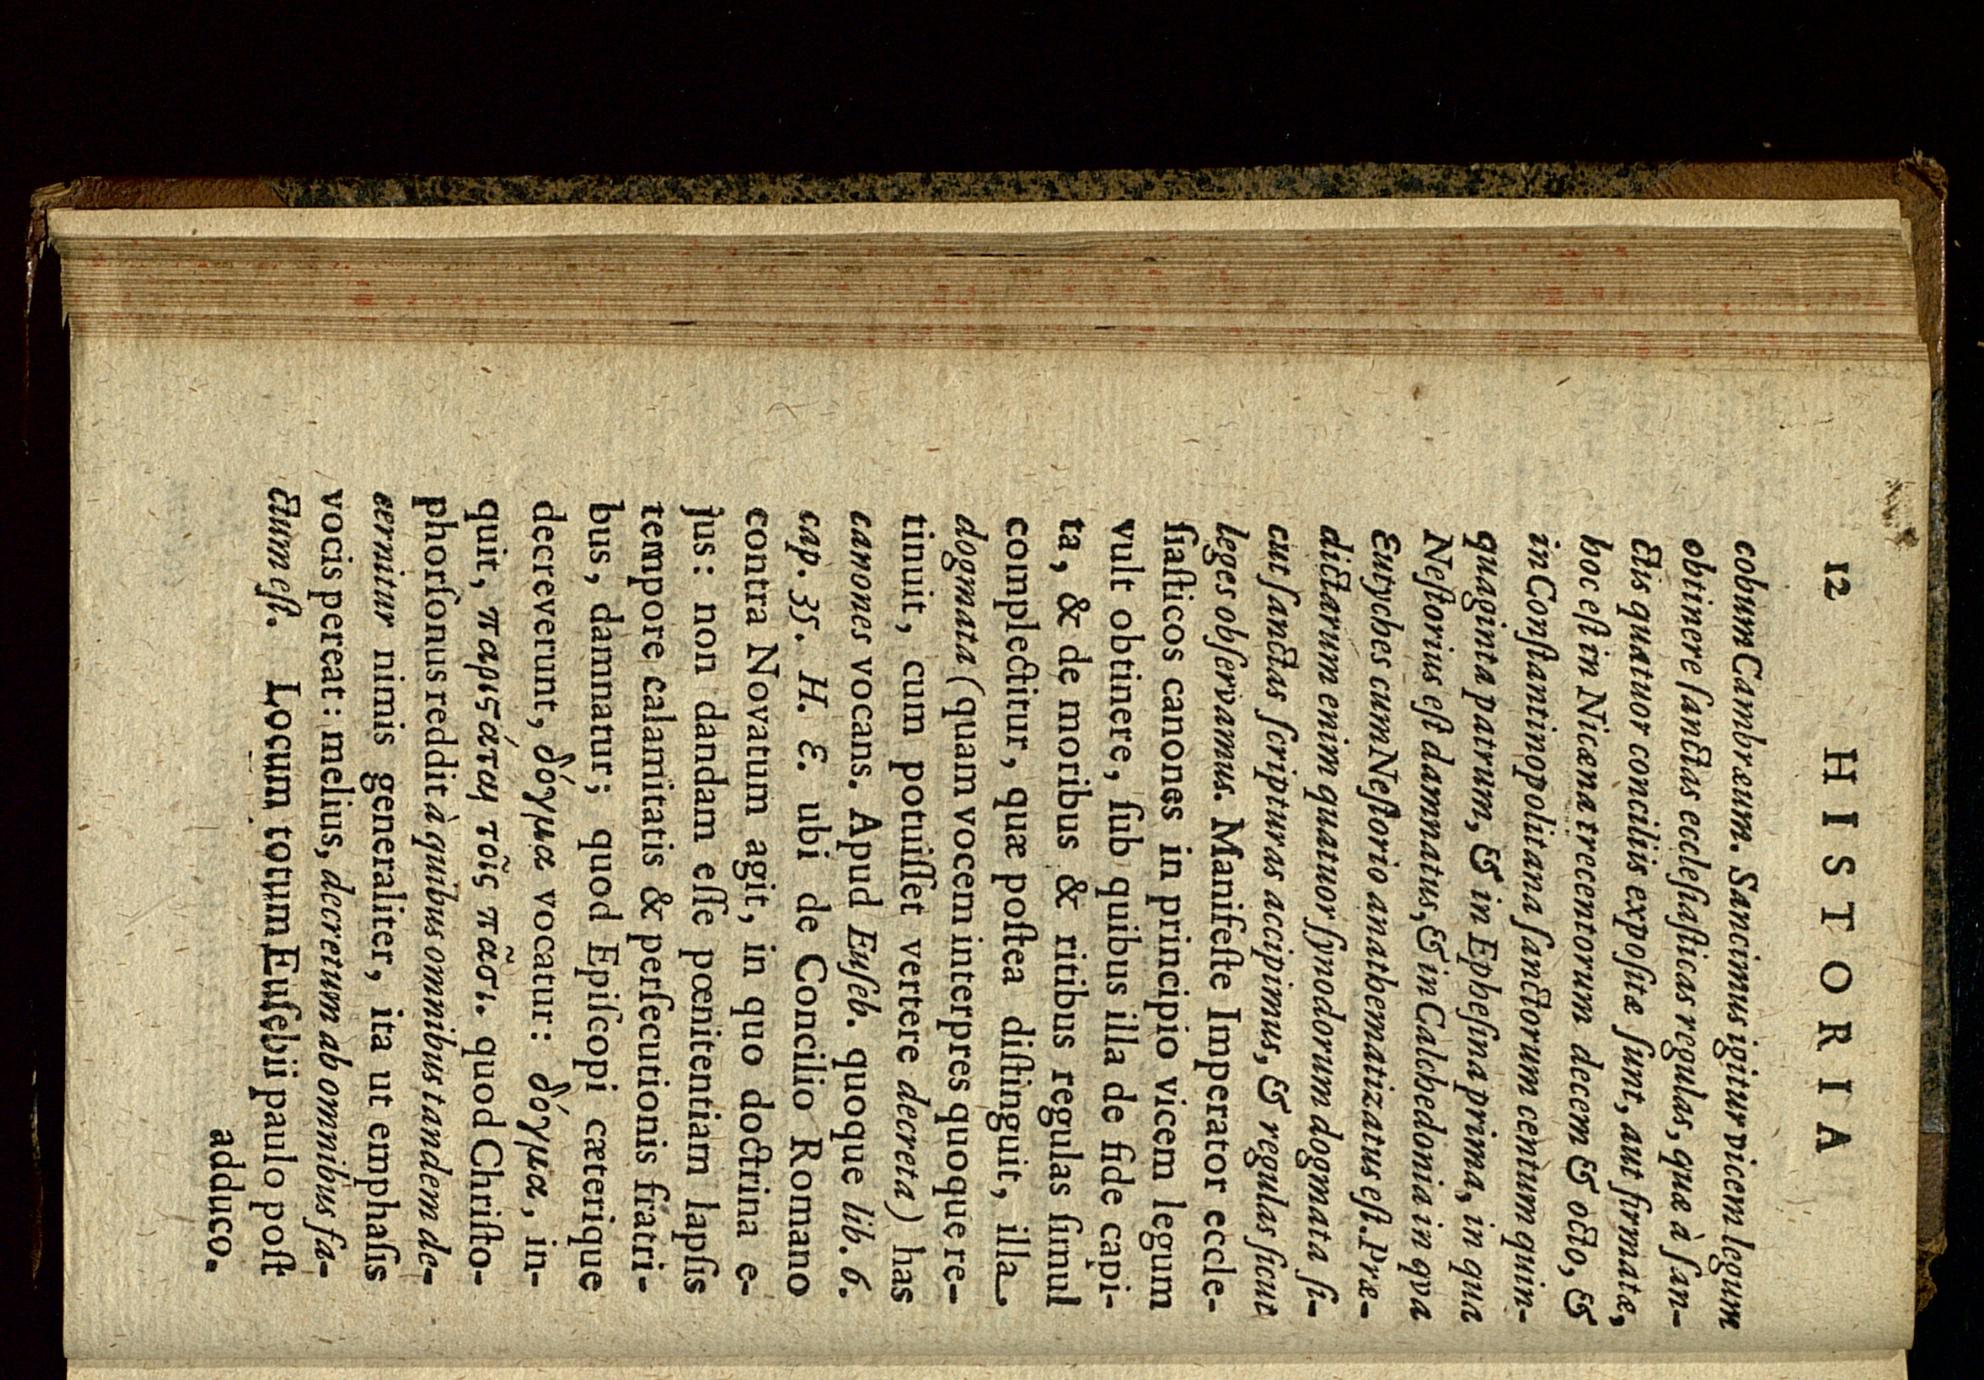 12 HISTORIA
cobum Cambræum. Sancimus igitur vicem legum
obtinere ſanctas eccleſiaſticas regulas, quæ à ſan-
ctis quatuor conciliis expoſitæ ſunt, aut firmatæ,
hoc eſt in Nicæna trecentorum decem & octo, &
in Conſtantinopolitana ſanctorum centum quin-
quaginta patrum, & in Epheſina prima, in qua
Neſtorius eſt damnatus, & in Calchedonia in qva
Eutyches cum Neſtorio anathematizatus eſt. Præ-
dictarum enim quatuor ſynodorum dogmata ſi-
cut ſanctas ſcripturas accipimus, & regulas ſicut
leges obſervamus. Manifeſte Imperator eccle-
ſiaſticos canones in principio vicem legum
vult obtinere, ſub quibus illa de fide capi-
ta, & de moribus & ritibus regulas ſimul
complectitur, quæ poſtea diſtinguit, illa
dogmata (quam vocem interpres quoque re-
tinuit, cum potuiſſet vertere decreta) has
canones vocans. Apud Euſeb. quoque lib. 6.
cap. 35. H. E. ubi de Concilio Romano
contra Novatum agit, in quo doctrina e-
jus: non dandam eſſe pœnitentiam lapſis
tempore calamitatis & perſecutionis fratri-
bus, damnatur; quod Epiſcopi cæterique
decreverunt, δόγμα vocatur: δόγμα, in-
quit, παριςάται τοῖς πᾶσι. quod Chriſto-
phorſonus reddit à quibus omnibus tandem de-
cernitur nimis generaliter, ita ut emphaſis
vocis pereat: melius, decretum ab omnibus fa-
ctum eſt. Locum totum Euſebii paulo poſt
adduco.